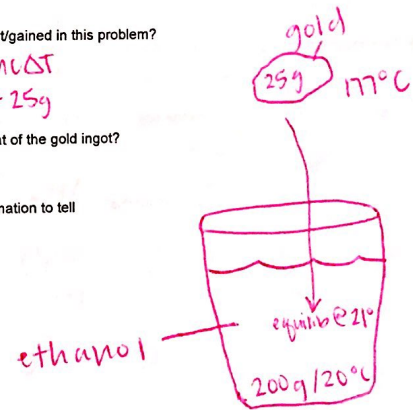 t/gained in this problem?
mcΔT
25g
at of the gold ingot?
mation to tell
gold
25g
ethanol
equilib @ 21°
200g/20°C